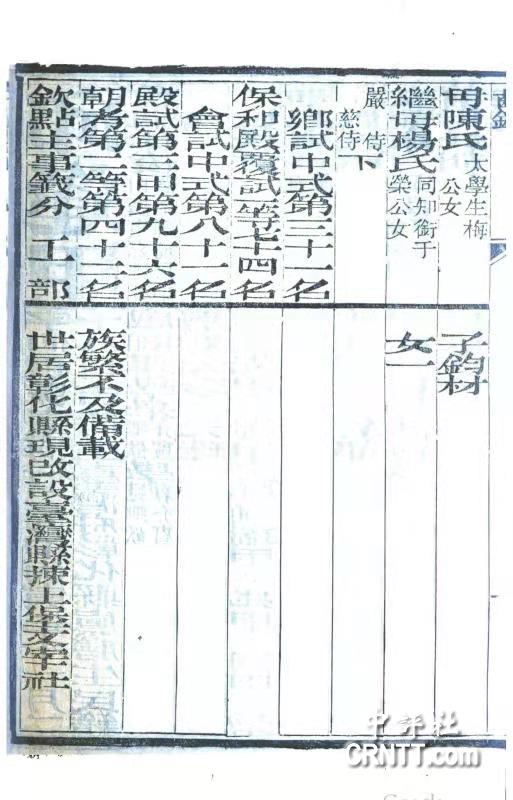 母陳氏 太學生梅
公女
繼母楊氏 同知銜于
榮公女
嚴侍
慈侍
下
鄉試中式第三十一名
保和殿覆試等七十四名
會試中式第八十一名
殿試第三甲第九十六名
朝考第二等第四十二名
欽點主事籤分 工 部
子鈞材
女一
族繁不及備載
世居彰化縣現改設臺灣縣揀上堡文宰社
中評社
CRNTT.com